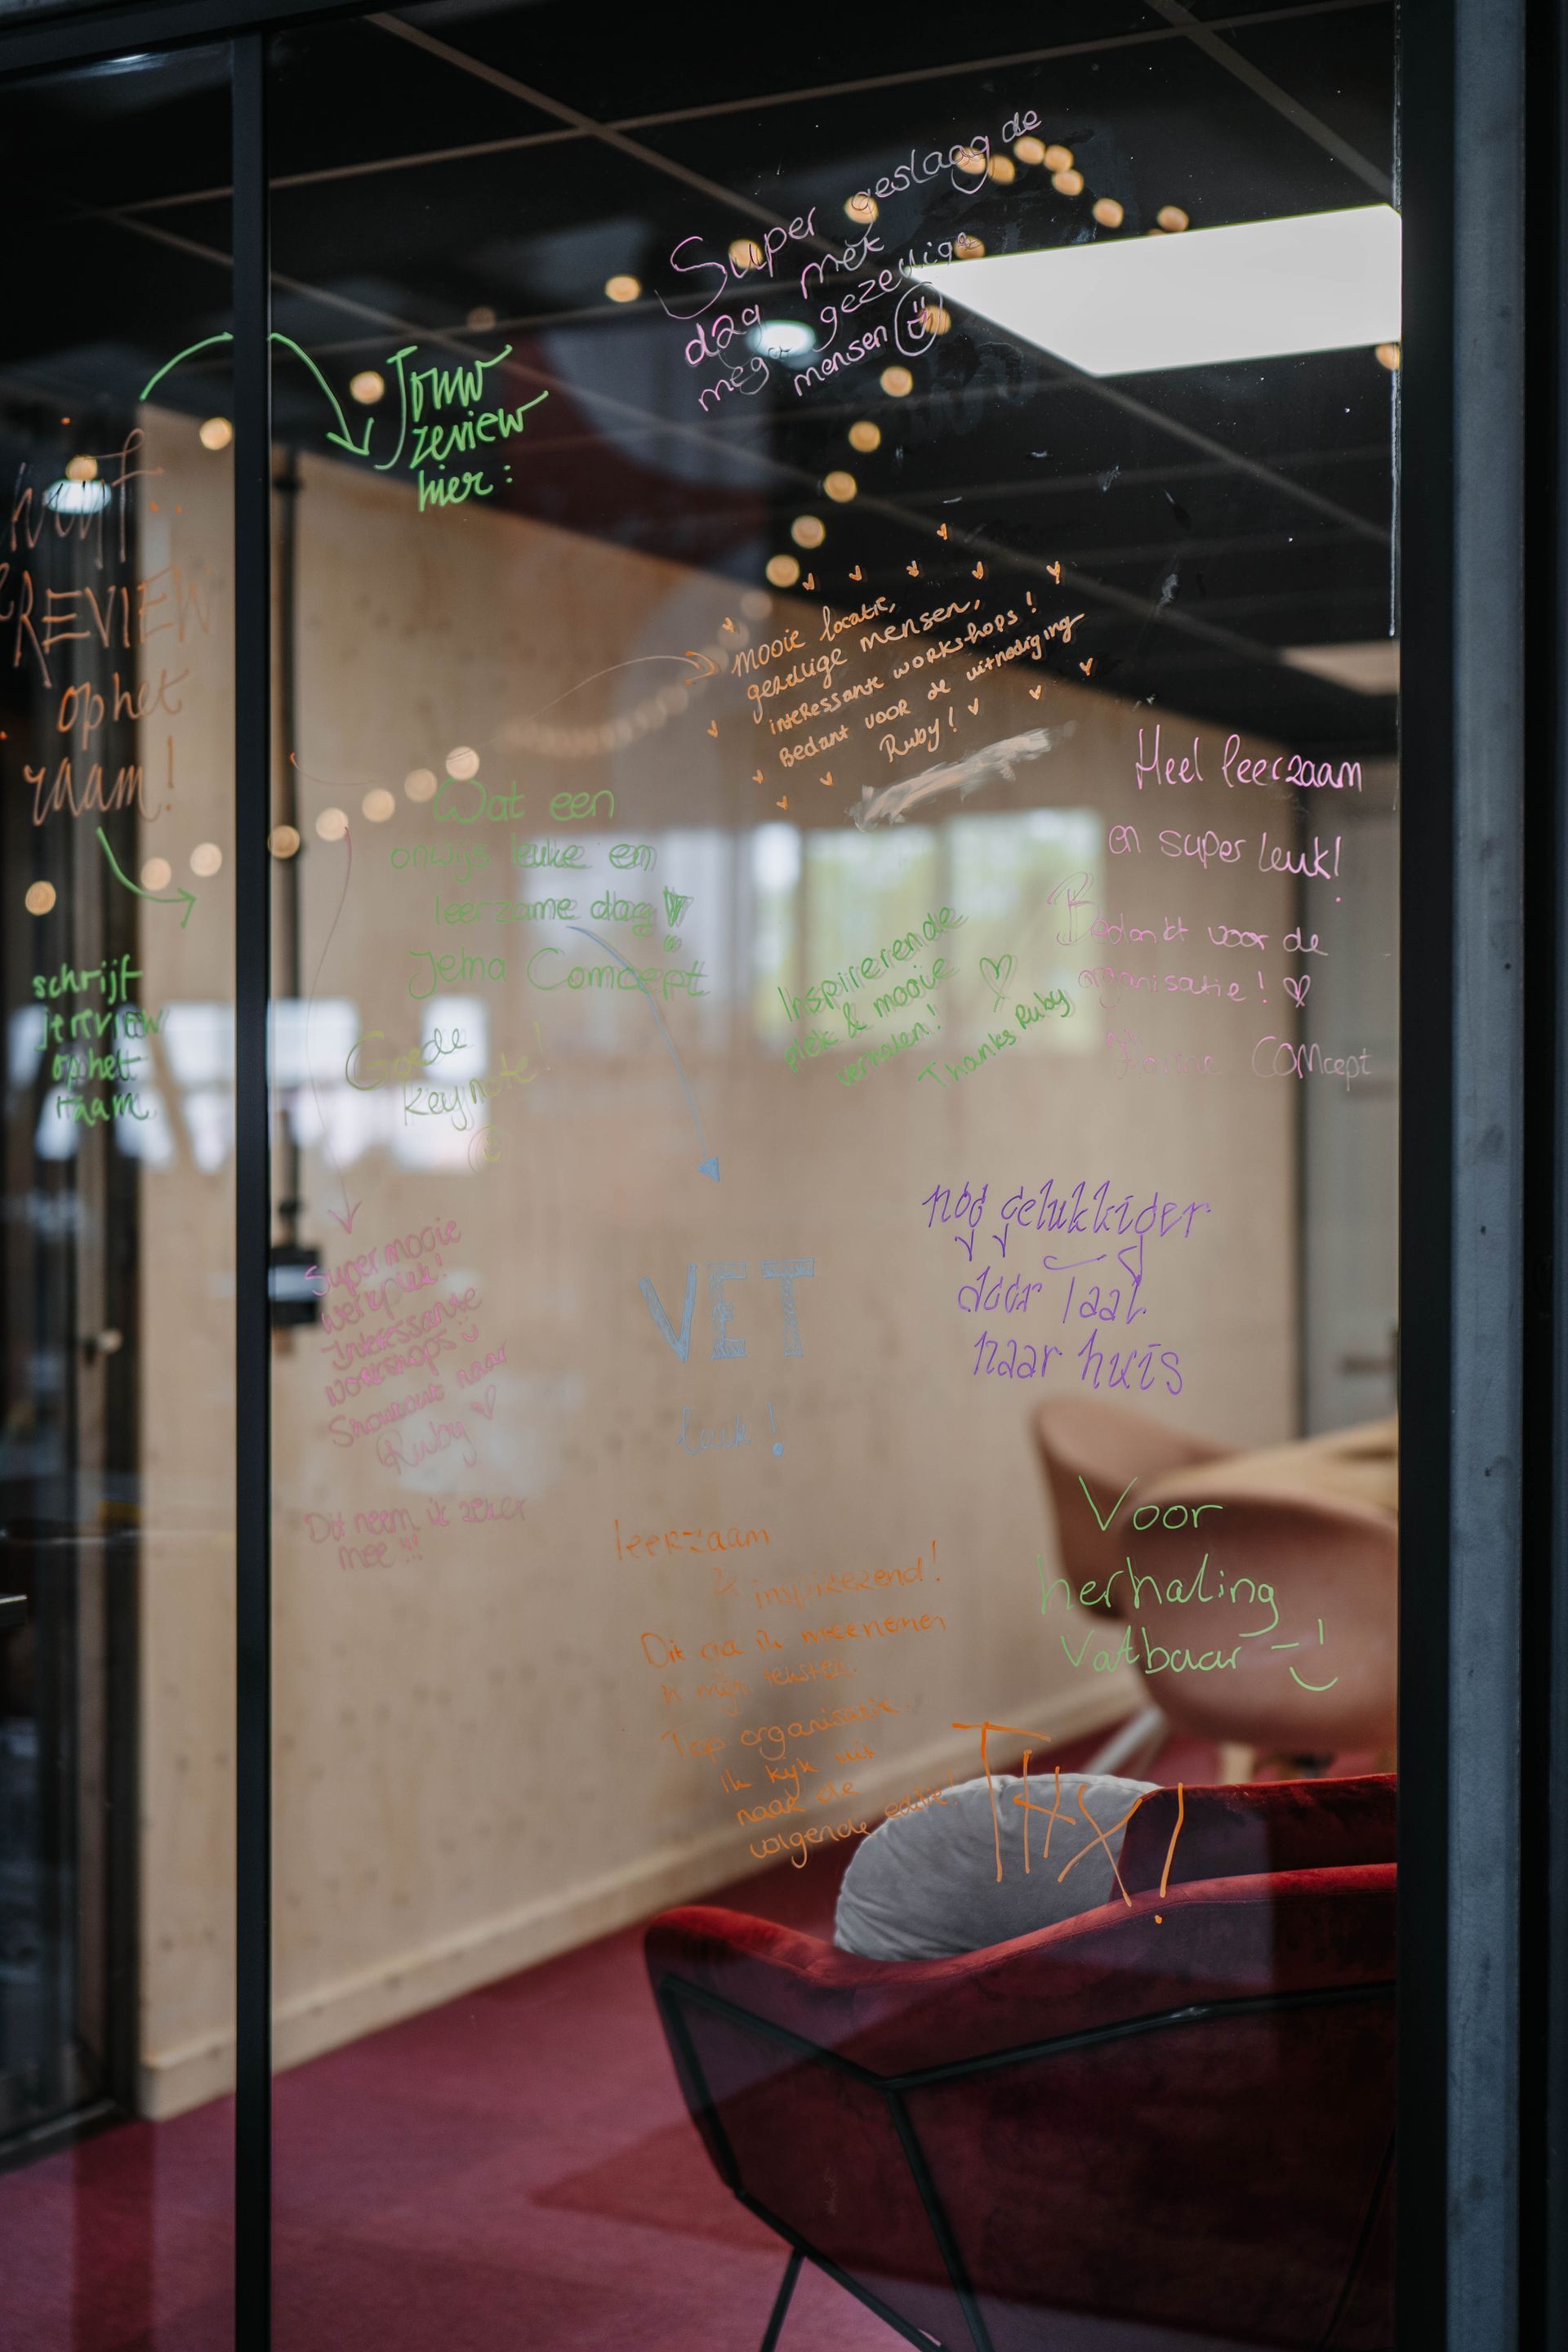 REVIEW
op het
raam!
schrijf
je review
op het
raam
Jouw
review
hier:
Super geslaagde
dag met
mega gezellige
mensen
mooie locatie,
gezellige mensen,
interessante workshops!
Bedankt voor de uitnodiging
Ruby!
Wat een
onwijs leuke en
leerzame dag!
Jema Comcept
Goede
keynote!
Inspirerende
plek & mooie
verhalen!
Thanks Ruby
Heel leerzaam
en super leuk!
Bedankt voor de
organisatie!
COMcept
Super mooie
werkplek!
Interessante
workshops
Shoutout naar
Ruby
Dit neem ik zeker
mee!!!
VET
leuk!
nóg gelukkiger
door Taal
naar huis
leerzaam
& inspirerend!
Dit ga ik meenemen
in mijn teksten.
Top organisatie.
Ik kijk uit
naar de
volgende editie!
Voor
herhaling
vatbaar
THX!